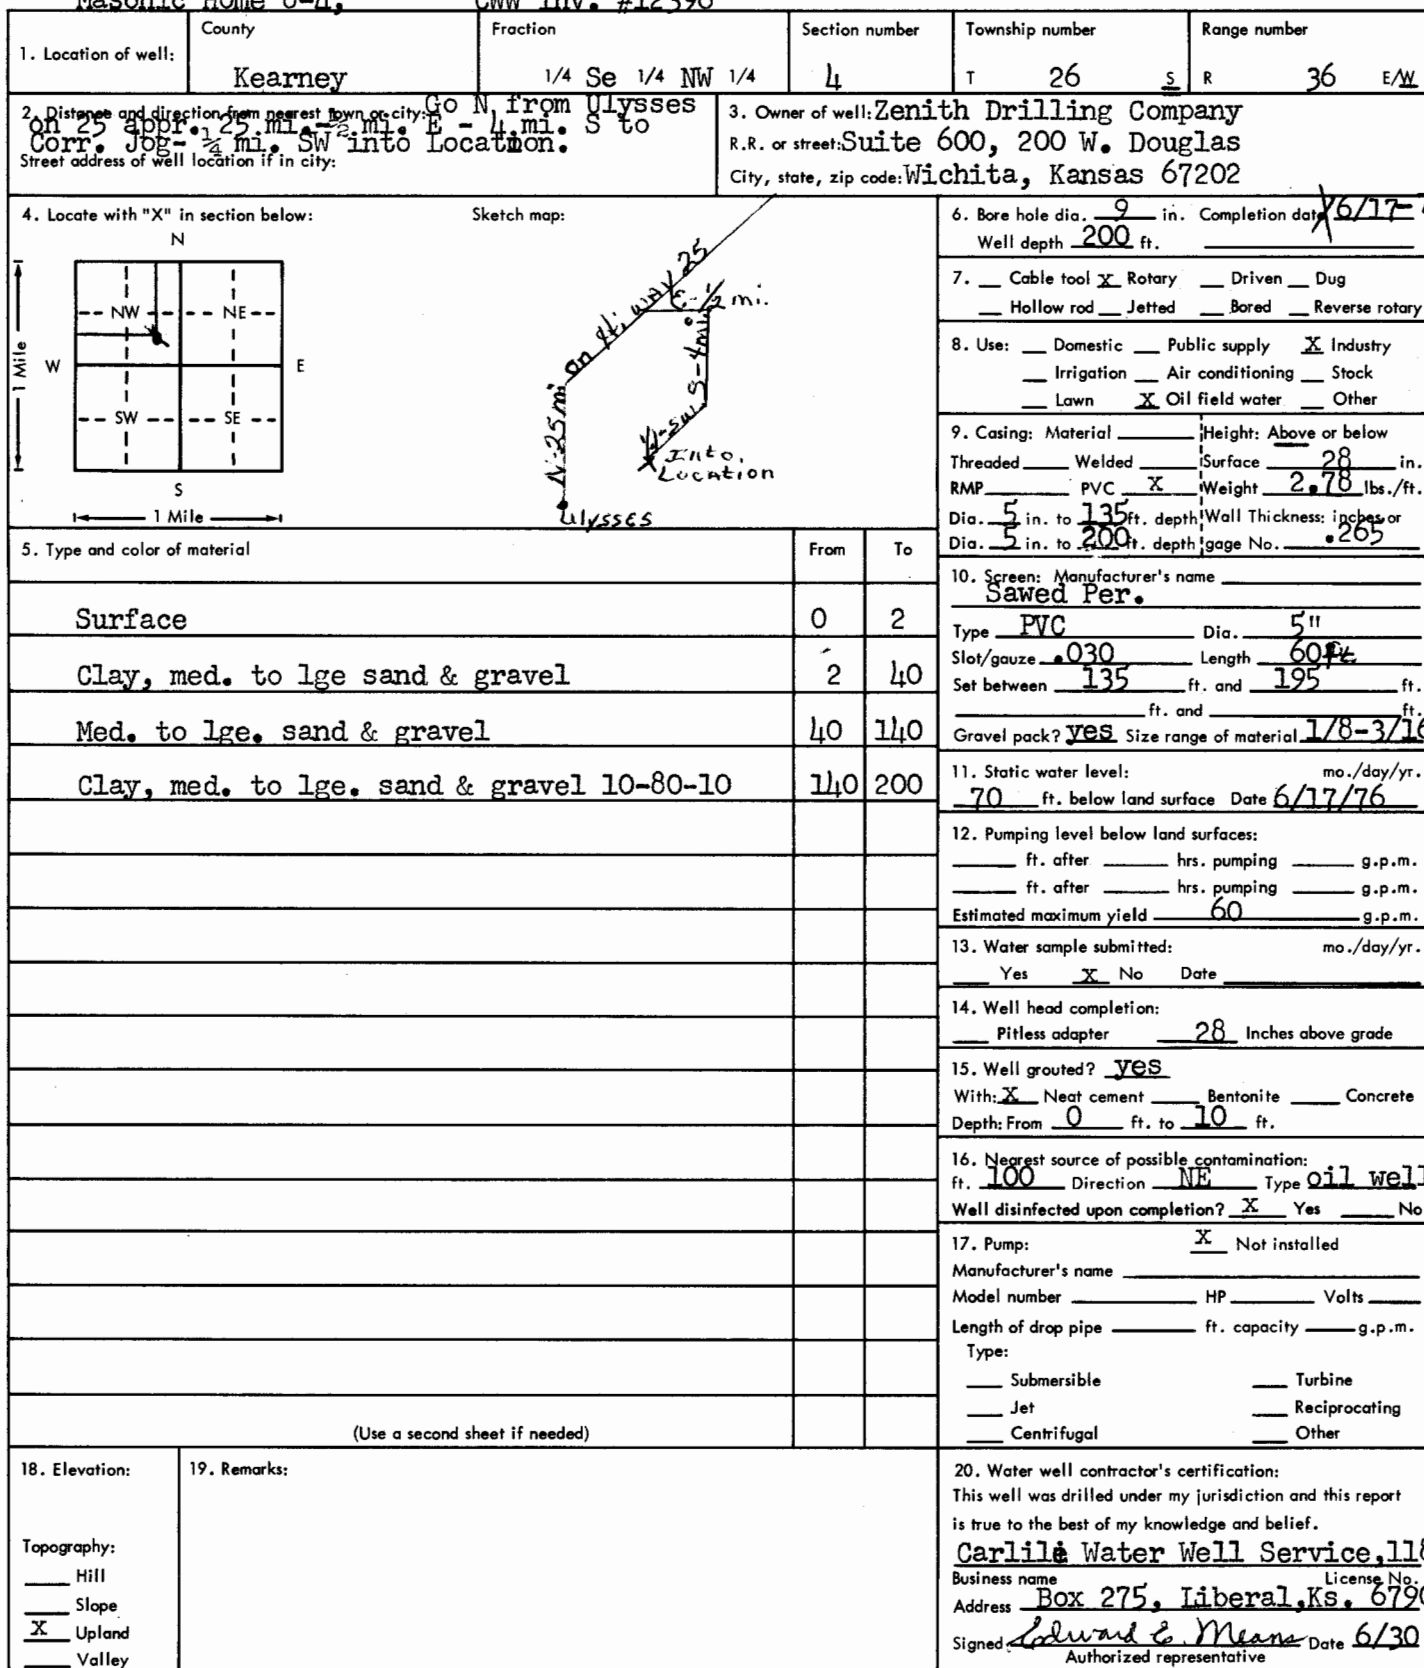 Masonic Home 6-4, CWW Inv. #12396
1. Location of well: County Kearney Fraction 1/4 Se 1/4 NW 1/4 Section number 4 Township number T 26 S Range number R 36 E/W
2. Distance and direction from nearest town or city: Go N. from Ulysses
on 25 appr. 25 mi.-½ mi. E - 4 mi. S to
Corr. Jog- ¼ mi. SW into Location.
Street address of well location if in city:
3. Owner of well: Zenith Drilling Company
R.R. or street: Suite 600, 200 W. Douglas
City, state, zip code: Wichita, Kansas 67202
4. Locate with "X" in section below: Sketch map:
N
NW NE
W E
1 Mile
SW SE
S
1 Mile
On Hi. way 25
E-1/2 mi.
S-4mi.
N-25mi
Into.
Location
Ulysses
5. Type and color of material From To
Surface 0 2
Clay, med. to lge sand & gravel 2 40
Med. to lge. sand & gravel 40 140
Clay, med. to lge. sand & gravel 10-80-10 140 200
(Use a second sheet if needed)
6. Bore hole dia. 9 in. Completion date 6/17-
Well depth 200 ft.
7. Cable tool X Rotary Driven Dug
Hollow rod Jetted Bored Reverse rotary
8. Use: Domestic Public supply X Industry
Irrigation Air conditioning Stock
Lawn X Oil field water Other
9. Casing: Material Height: Above or below
Threaded Welded Surface 28 in.
RMP PVC X Weight 2.78 lbs./ft.
Dia. 5 in. to 135 ft. depth Wall Thickness: inches or
Dia. 5 in. to 200 ft. depth gage No. .265
10. Screen: Manufacturer's name
Sawed Per.
Type PVC Dia. 5"
Slot/gauze .030 Length 60 ft
Set between 135 ft. and 195 ft.
ft. and ft.
Gravel pack? yes Size range of material 1/8-3/16
11. Static water level: mo./day/yr.
70 ft. below land surface Date 6/17/76
12. Pumping level below land surfaces:
ft. after hrs. pumping g.p.m.
ft. after hrs. pumping g.p.m.
Estimated maximum yield 60 g.p.m.
13. Water sample submitted: mo./day/yr.
Yes X No Date
14. Well head completion:
Pitless adapter 28 Inches above grade
15. Well grouted? yes
With: X Neat cement Bentonite Concrete
Depth: From 0 ft. to 10 ft.
16. Nearest source of possible contamination:
ft. 100 Direction NE Type oil well
Well disinfected upon completion? X Yes No
17. Pump: X Not installed
Manufacturer's name
Model number HP Volts
Length of drop pipe ft. capacity g.p.m.
Type:
Submersible Turbine
Jet Reciprocating
Centrifugal Other
18. Elevation:
Topography:
Hill
Slope
X Upland
Valley
19. Remarks:
20. Water well contractor's certification:
This well was drilled under my jurisdiction and this report
is true to the best of my knowledge and belief.
Carlile Water Well Service, 118
Business name License No.
Address Box 275, Liberal, Ks. 6790
Signed Edward E. Means Date 6/30
Authorized representative